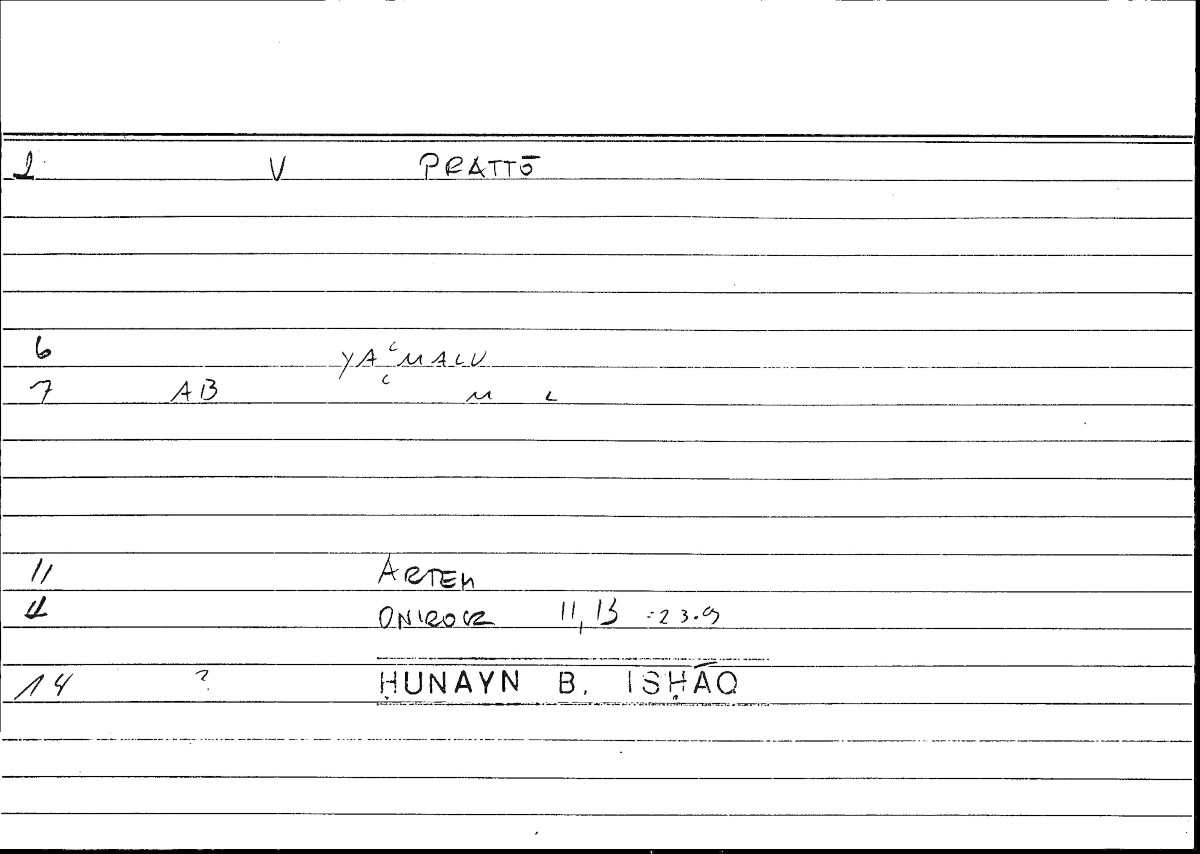 2 V PRATTŌ
6 YAʿMALU
7 AB ʿ M L
11 ARTEM
ONIROCR 11,13 :23.9
14 ? ḤUNAYN B. ISḤĀQ